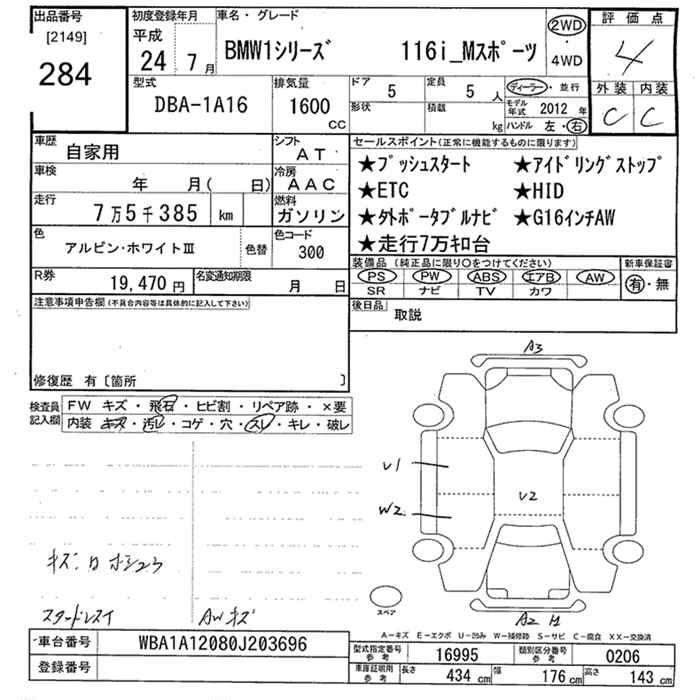 出品番号
[2149]
284
初度登録年月
平成
24 7月
車名・グレード
BMW1シリーズ 116i_Mスポーツ
2WD
・
4WD
評価点
4
外装 内装
C C
型式
DBA-1A16
排気量
1600
CC
ドア
5
定員
5 人
形状
積載
kg
ディーラー・並行
モデル年式 2012年
ハンドル 左・右
車歴
自家用
シフト
AT
車検
年 月( 日)
冷房
AAC
走行
7万5千385 km
燃料
ガソリン
色
アルピン・ホワイトⅢ
色替
色コード
300
R券
19,470円
名変通知期限
月 日
セールスポイント(正常に機能するものに限ります)
★プッシュスタート ★アイドリングストップ
★ETC ★HID
★外ポータブルナビ ★G16インチAW
★走行7万キロ台
装備品(純正品に限り○をつけてください) 新車保証書
PS PW ABS エアB AW
有・無
SR ナビ TV カワ
後日品
取説
注意事項申告欄(不具合内容等は具体的に記入して下さい)
修復歴 有〔箇所 〕
検査員記入欄
FW キズ・飛石・ヒビ割・リペア跡・×要
内装 キズ・汚レ・コゲ・穴・スレ・キレ・破レ
A3
U1
W2
U2
スタッドレスタイ
AWキズ
スペア
A2
A-キズ E-エクボ U-凹み W-補修跡 S-サビ C-腐食 XX-交換済
車台番号
WBA1A12080J203696
登録番号
型式指定番号 参考
16995
類別区分番号 参考
0206
車庫証明用 参考
長さ 434 cm 幅 176 cm 高さ 143 cm